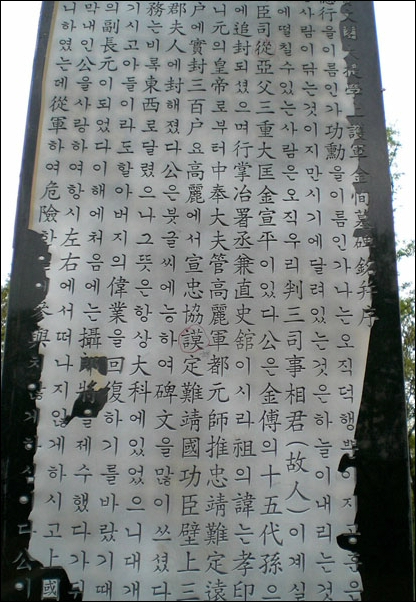 提學上護軍金恂墓碑銘幷序
德行을이름인가功勳을이름인가나는오직덕행뿐이지공훈은
사람이닦는것이지만시기에달려있는것은하늘이내리는것
에떨칠수있는사람은오직우리判三司事相君(故人)이계실
臣司從亞父三重大匡金宣平이있다公은金傅의十五代孫으
에追封되셨으며行掌冶署丞兼直史館이시라祖의諱는孝印
니元의皇帝로부터中奉大夫管高麗軍都元師推忠靖難定遠
户에實封三百户요高麗에서宣忠協謨定難靖國功臣壁上三
郡夫人에封해졌다公은붓글씨에能하여碑文을많이쓰셨다
務는비록東西로달렸으나그뜻은항상大科에있었으니대개
기시고아들이라도할아버지의偉業을回復하기를바랐기때
의副長元이되었다이해에처음에는攝郎將을제수했다가되
막내인公을사랑하여항시左右에서떠나지않게하시고上國
니하였는데從軍하여危險한일에參與치않게하시다公이